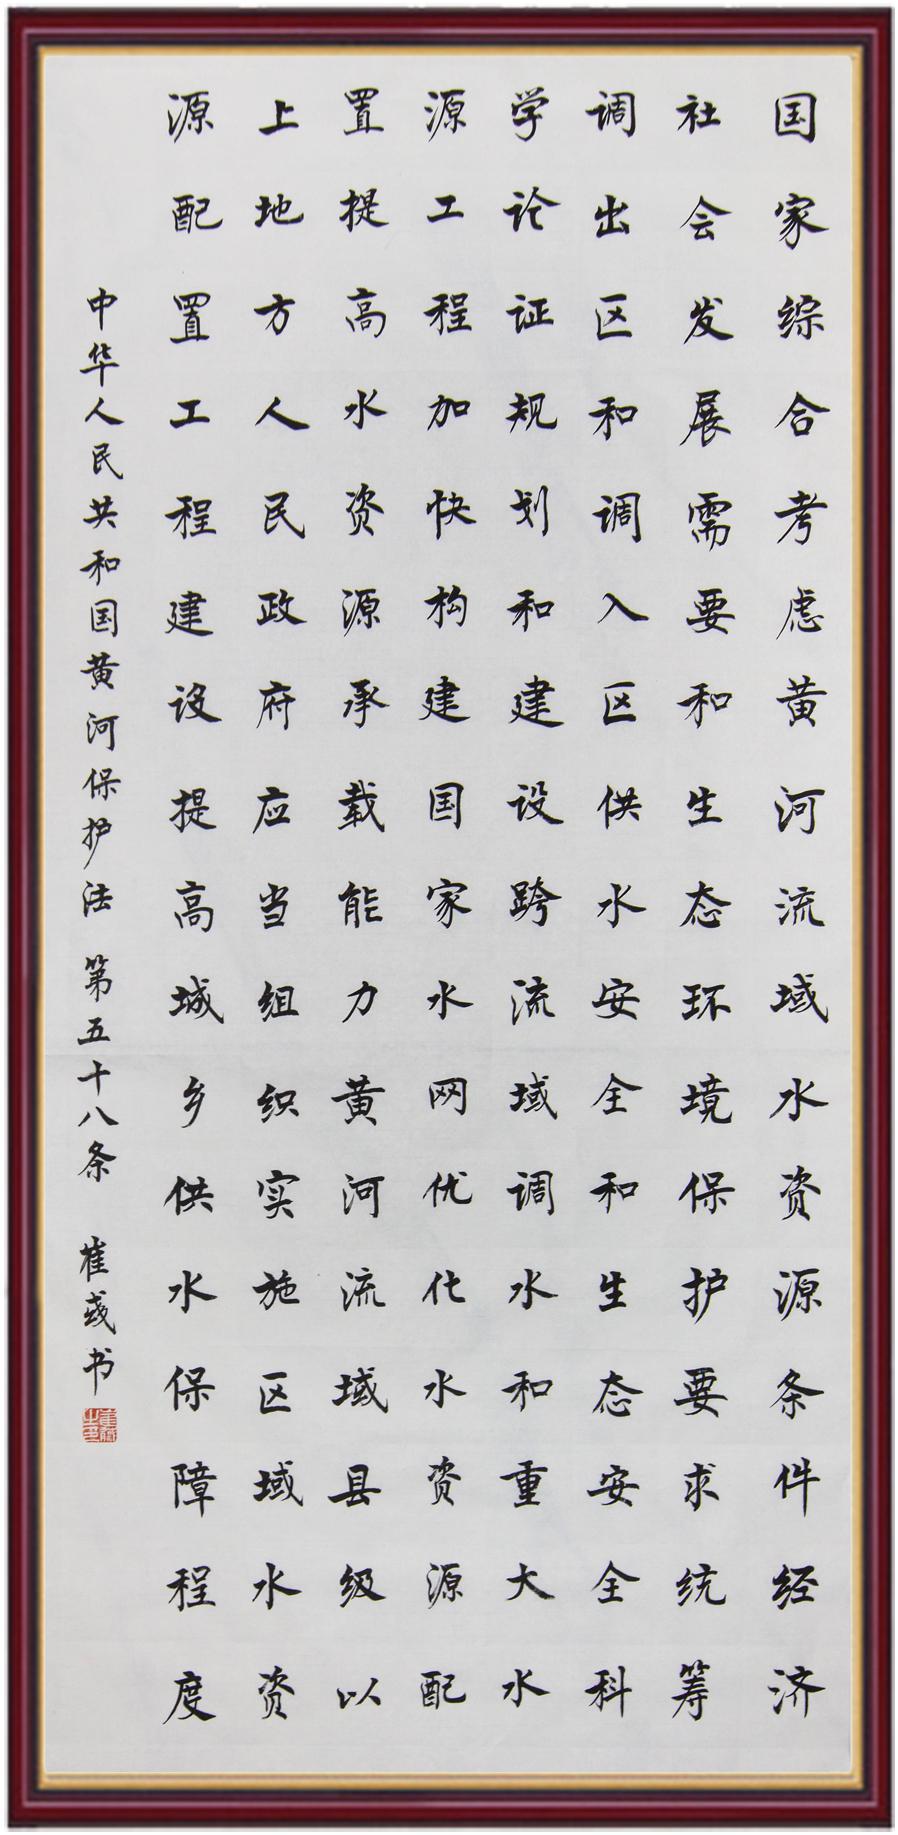 国家综合考虑黄河流域水资源条件经济
社会发展需要和生态环境保护要求统筹
调出区和调入区供水安全和生态安全科
学论证规划和建设跨流域调水和重大水
源工程加快构建国家水网优化水资源配
置提高水资源承载能力黄河流域县级以
上地方人民政府应当组织实施区域水资
源配置工程建设提高城乡供水保障程度
中华人民共和国黄河保护法 第五十八条 崔彧书